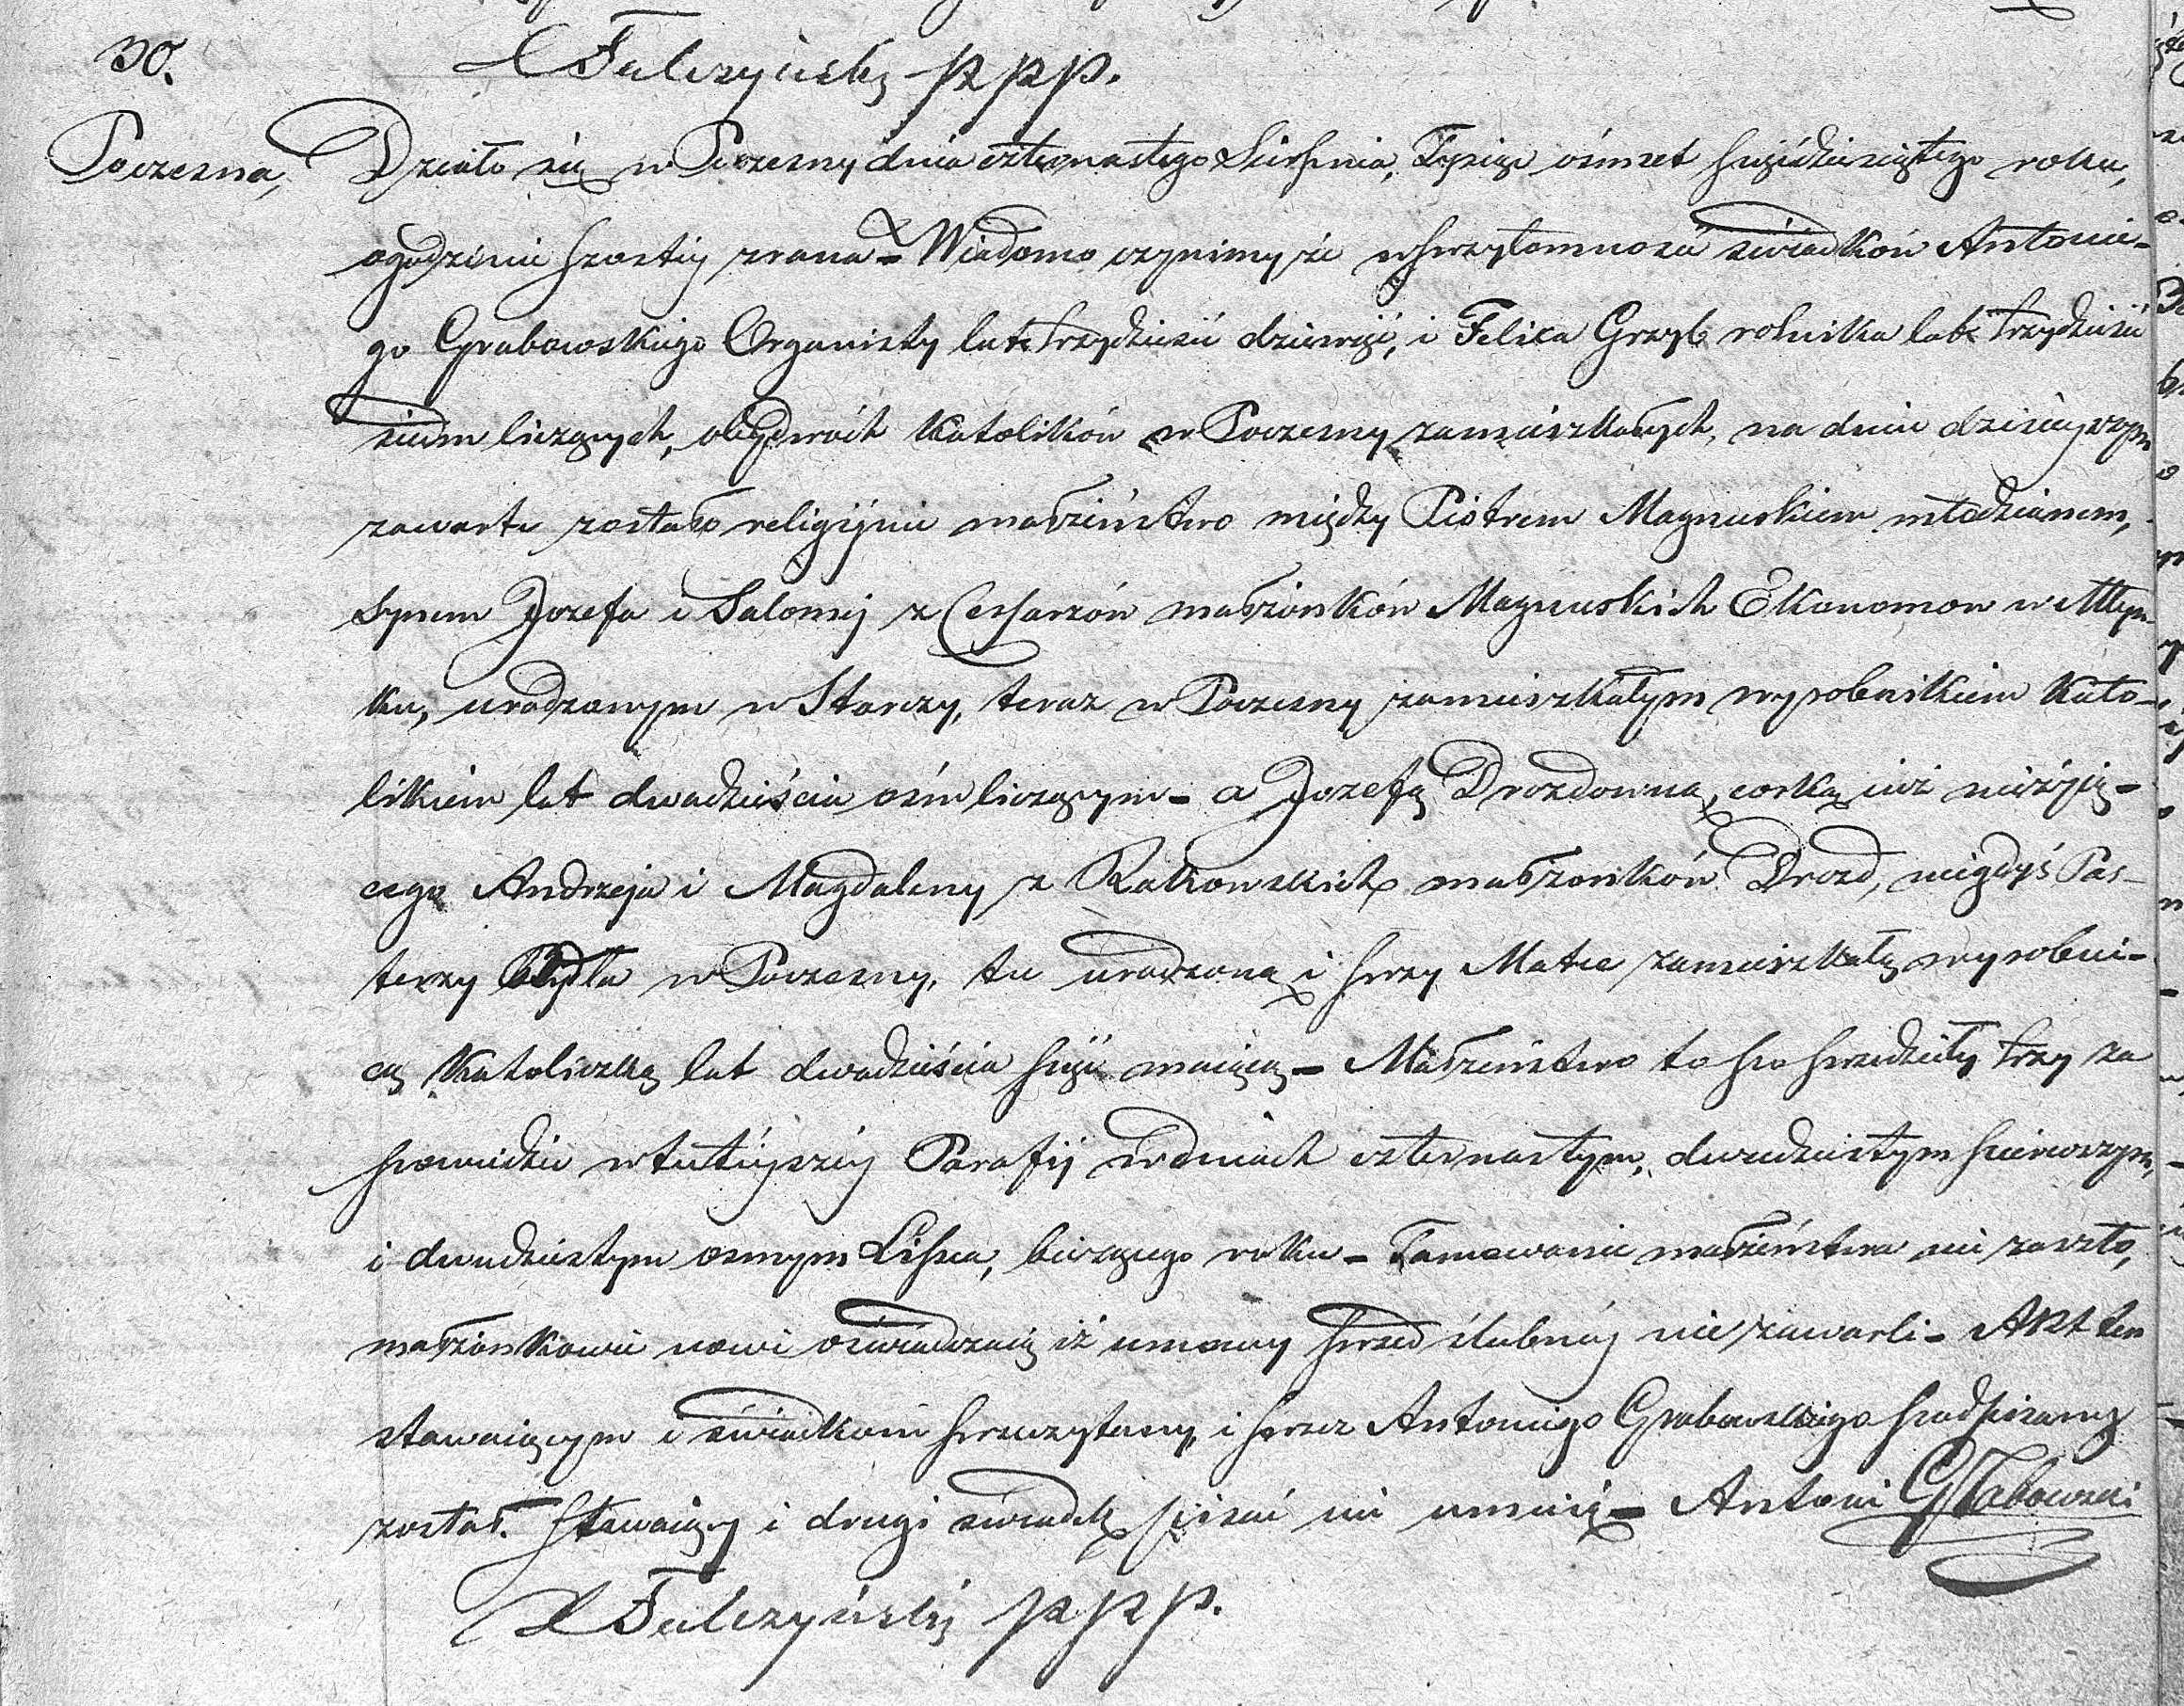 30.
X Falczyński p p p.
Poczesna,
Działo się w Poczesny dnia czternastego Sierpnia, Tysiąc ośmset pięćdziesiątego roku,
ogodzinie szostej zrana - Wiadomo czynimy że wprzytomności świadków Antonie-
go Grabowskiego Organisty lat trzydzieści dziewięć, i Felixa Grzyb rolnika lat trzydzieści
siedm liczących, obydwóch Katolików w Poczesny zamieszkałych, na dniu dzisiejszym
zawarte zostało religijnie małżeństwo między Piotrem Magnuskiem młodzianem,
synem Jozefa i Salomej z Cesarzów małżonków Magnuskich Ekonomow w Młyn-
ku, urodzonym w Starczy, teraz w Poczesny zamieszkałym wyrobnikiem Kato-
likiem lat dwadzieścia ośm liczącym - a Jozefą Drozdowną, corką już nieżyją-
cego Andrzeja i Magdaleny z Rakowskich małżonków Drozd, niegdyś Pas-
terzy Bydła w Poczesny, tu urodzoną i przy Matce zamieszkałą wyrobni-
cą Katoliczką lat dwadzieścia pięć maiącą - Małżeństwo to poprzedziły trzy za
powiedzie wtutéjszéj Parafij w dniach czternastym, dwudziestym pierwszym,
i dwudziestym osmym Lipca, bieżącego roku - Tamowanie małżeństwa nie zaszło,
małżonkowie nowi oświadczaią iż umowy przed ślubnéj nie zawarli - Akt ten
stawaiącym i świadkom przeczytany, i przez Antoniego Grabowskiego podpisany
został. Stawaiący i drugi świadek pisać nie umieią - Antoni Grabowski
X Falczyński p p p.